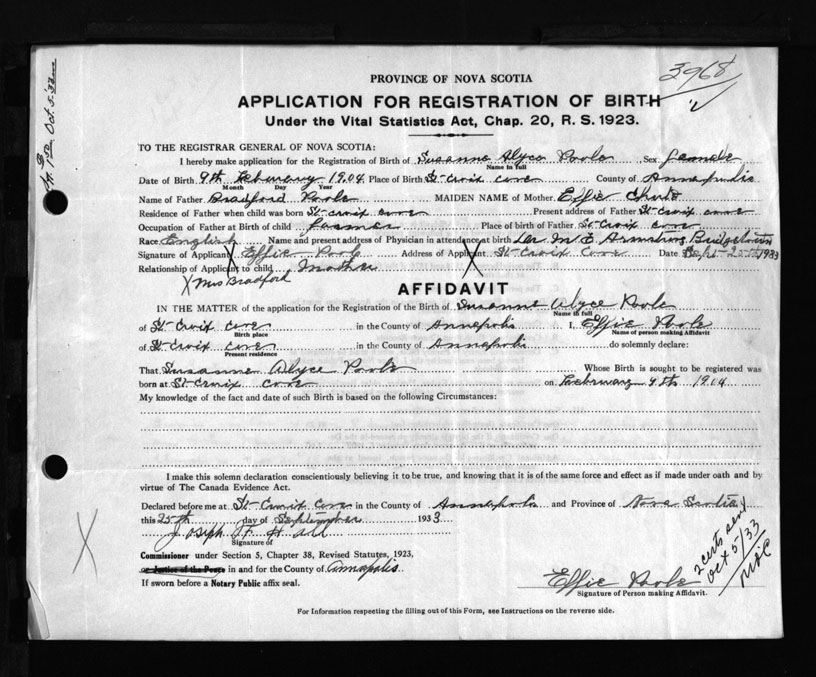 3968
PROVINCE OF NOVA SCOTIA
APPLICATION FOR REGISTRATION OF BIRTH
Under the Vital Statistics Act, Chap. 20, R. S. 1923.
TO THE REGISTRAR GENERAL OF NOVA SCOTIA:
I hereby make application for the Registration of Birth of Susanne Alyce Poole Sex female
Name in full
Date of Birth 9th February 1904 Place of Birth St-Croix cove County of Annapolis
Month Day Year
Name of Father Bradford Poole MAIDEN NAME of Mother Effie Chute
Residence of Father when child was born St-Croix cove Present address of Father St-Croix cove
Occupation of Father at Birth of child farmer Place of birth of Father St-Croix cove
Race English Name and present address of Physician in attendance at birth M. E. Armstrong Bridgetown
Signature of Applicant X Effie Poole Address of Applicant X St-Croix Cove Date Sept-25th 1933
Relationship of Applicant to child mother
X Mrs Bradford
AFFIDAVIT
IN THE MATTER of the application for the Registration of the Birth of Susanne Alyce Poole
Name in full
of St-Croix cove in the County of Annapolis I, Effie Poole
Birth place Name of person making Affidavit
of St-Croix cove in the County of Annapolis do solemnly declare:
Present residence
That Susanne Alyce Poole Whose Birth is sought to be registered was
born at St-Croix cove on February 9th 1904
My knowledge of the fact and date of such Birth is based on the following Circumstances:
I make this solemn declaration conscientiously believing it to be true, and knowing that it is of the same force and effect as if made under oath and by
virtue of The Canada Evidence Act.
Declared before me at St-Croix Cove in the County of Annapolis and Province of Nova Scotia
this 25th day of September 1933
Joseph H. Hall
Signature of
Commissioner under Section 5, Chapter 38, Revised Statutes, 1923,
or Justice of the Peace in and for the County of Annapolis
If sworn before a Notary Public affix seal.
2 certs sent
Oct 5/33
Effie Poole
Signature of Person making Affidavit.
For Information respecting the filling out of this Form, see Instructions on the reverse side.
Oct. 5. 33